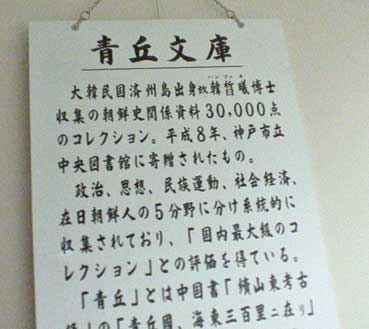 青丘文庫
大韓民国済州島出身故韓晳曦博士
収集の朝鮮史関係資料30,000点
のコレクション。平成8年、神戸市立
中央図書館に寄贈されたもの。
政治、思想、民族運動、社会経済、
在日朝鮮人の5分野に分け系統的に
収集されており、「国内最大級のコ
レクション」との評価を得ている。
「青丘」とは中国書「續山東考古
録」の「青丘国、海東三百里ニ在リ」